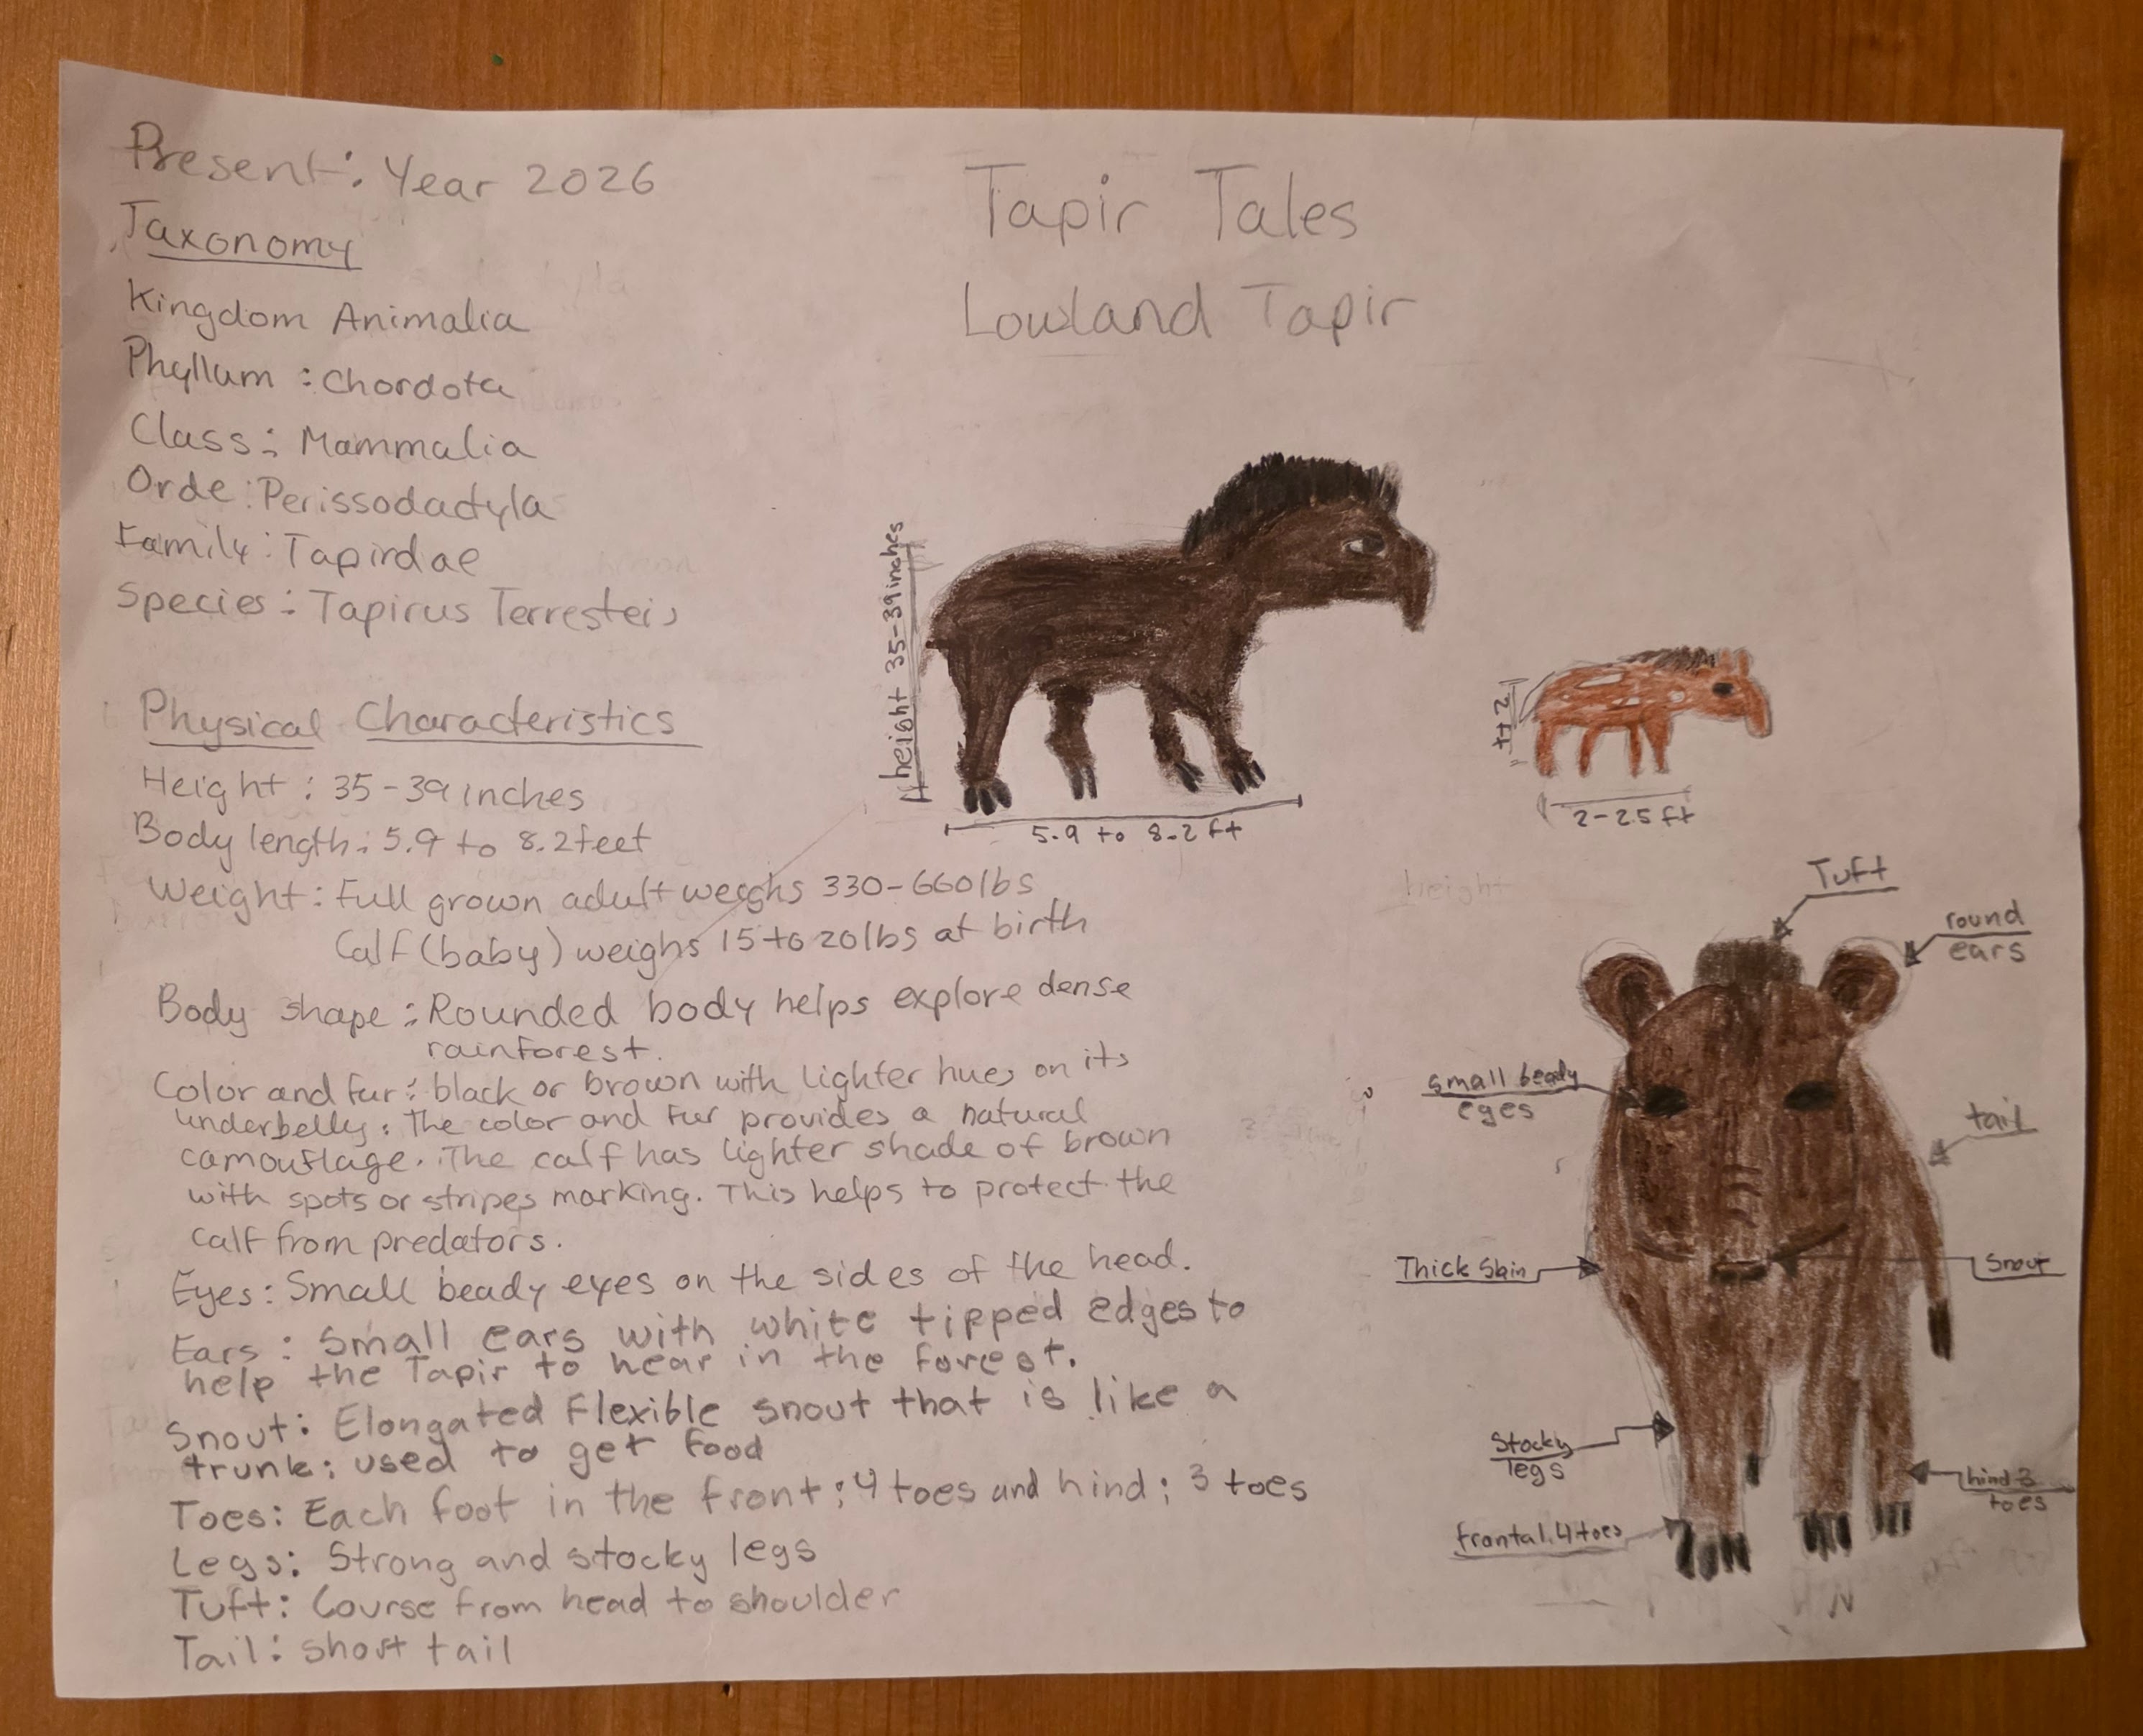 Present: Year 2026
Taxonomy
Kingdom Animalia
Phyllum : Chordota
Class: Mammalia
Orde: Perissodactyla
Family: Tapirdae
Species: Tapirus Terresteis
Physical Characteristics
Height: 35-39 inches
Body length: 5.9 to 8.2 feet
Weight: Full grown adult weighs 330-660lbs
Calf (baby) weighs 15 to 20lbs at birth
Body shape: Rounded body helps explore dense
rainforest.
Color and fur: black or brown with lighter hues on its
underbelly. The color and fur provides a natural
camouflage. The calf has lighter shade of brown
with spots or stripes marking. This helps to protect the
calf from predators.
Eyes: Small beady eyes on the sides of the head.
Ears: Small ears with white tipped edges to
help the Tapir to hear in the forest.
Snout: Elongated Flexible snout that is like a
trunk; used to get food
Toes: Each foot in the front; 4 toes and hind; 3 toes
Legs: Strong and stocky legs
Tuft: Course from head to shoulder
Tail: short tail
Tapir Tales
Lowland Tapir
height 35-39 inches
5.9 to 8.2 ft
2 ft
2-2.5 ft
height
Tuft
round
ears
small beady
eyes
tail
Thick Skin
Snout
Stocky
legs
hind 3
toes
frontal 4 toes